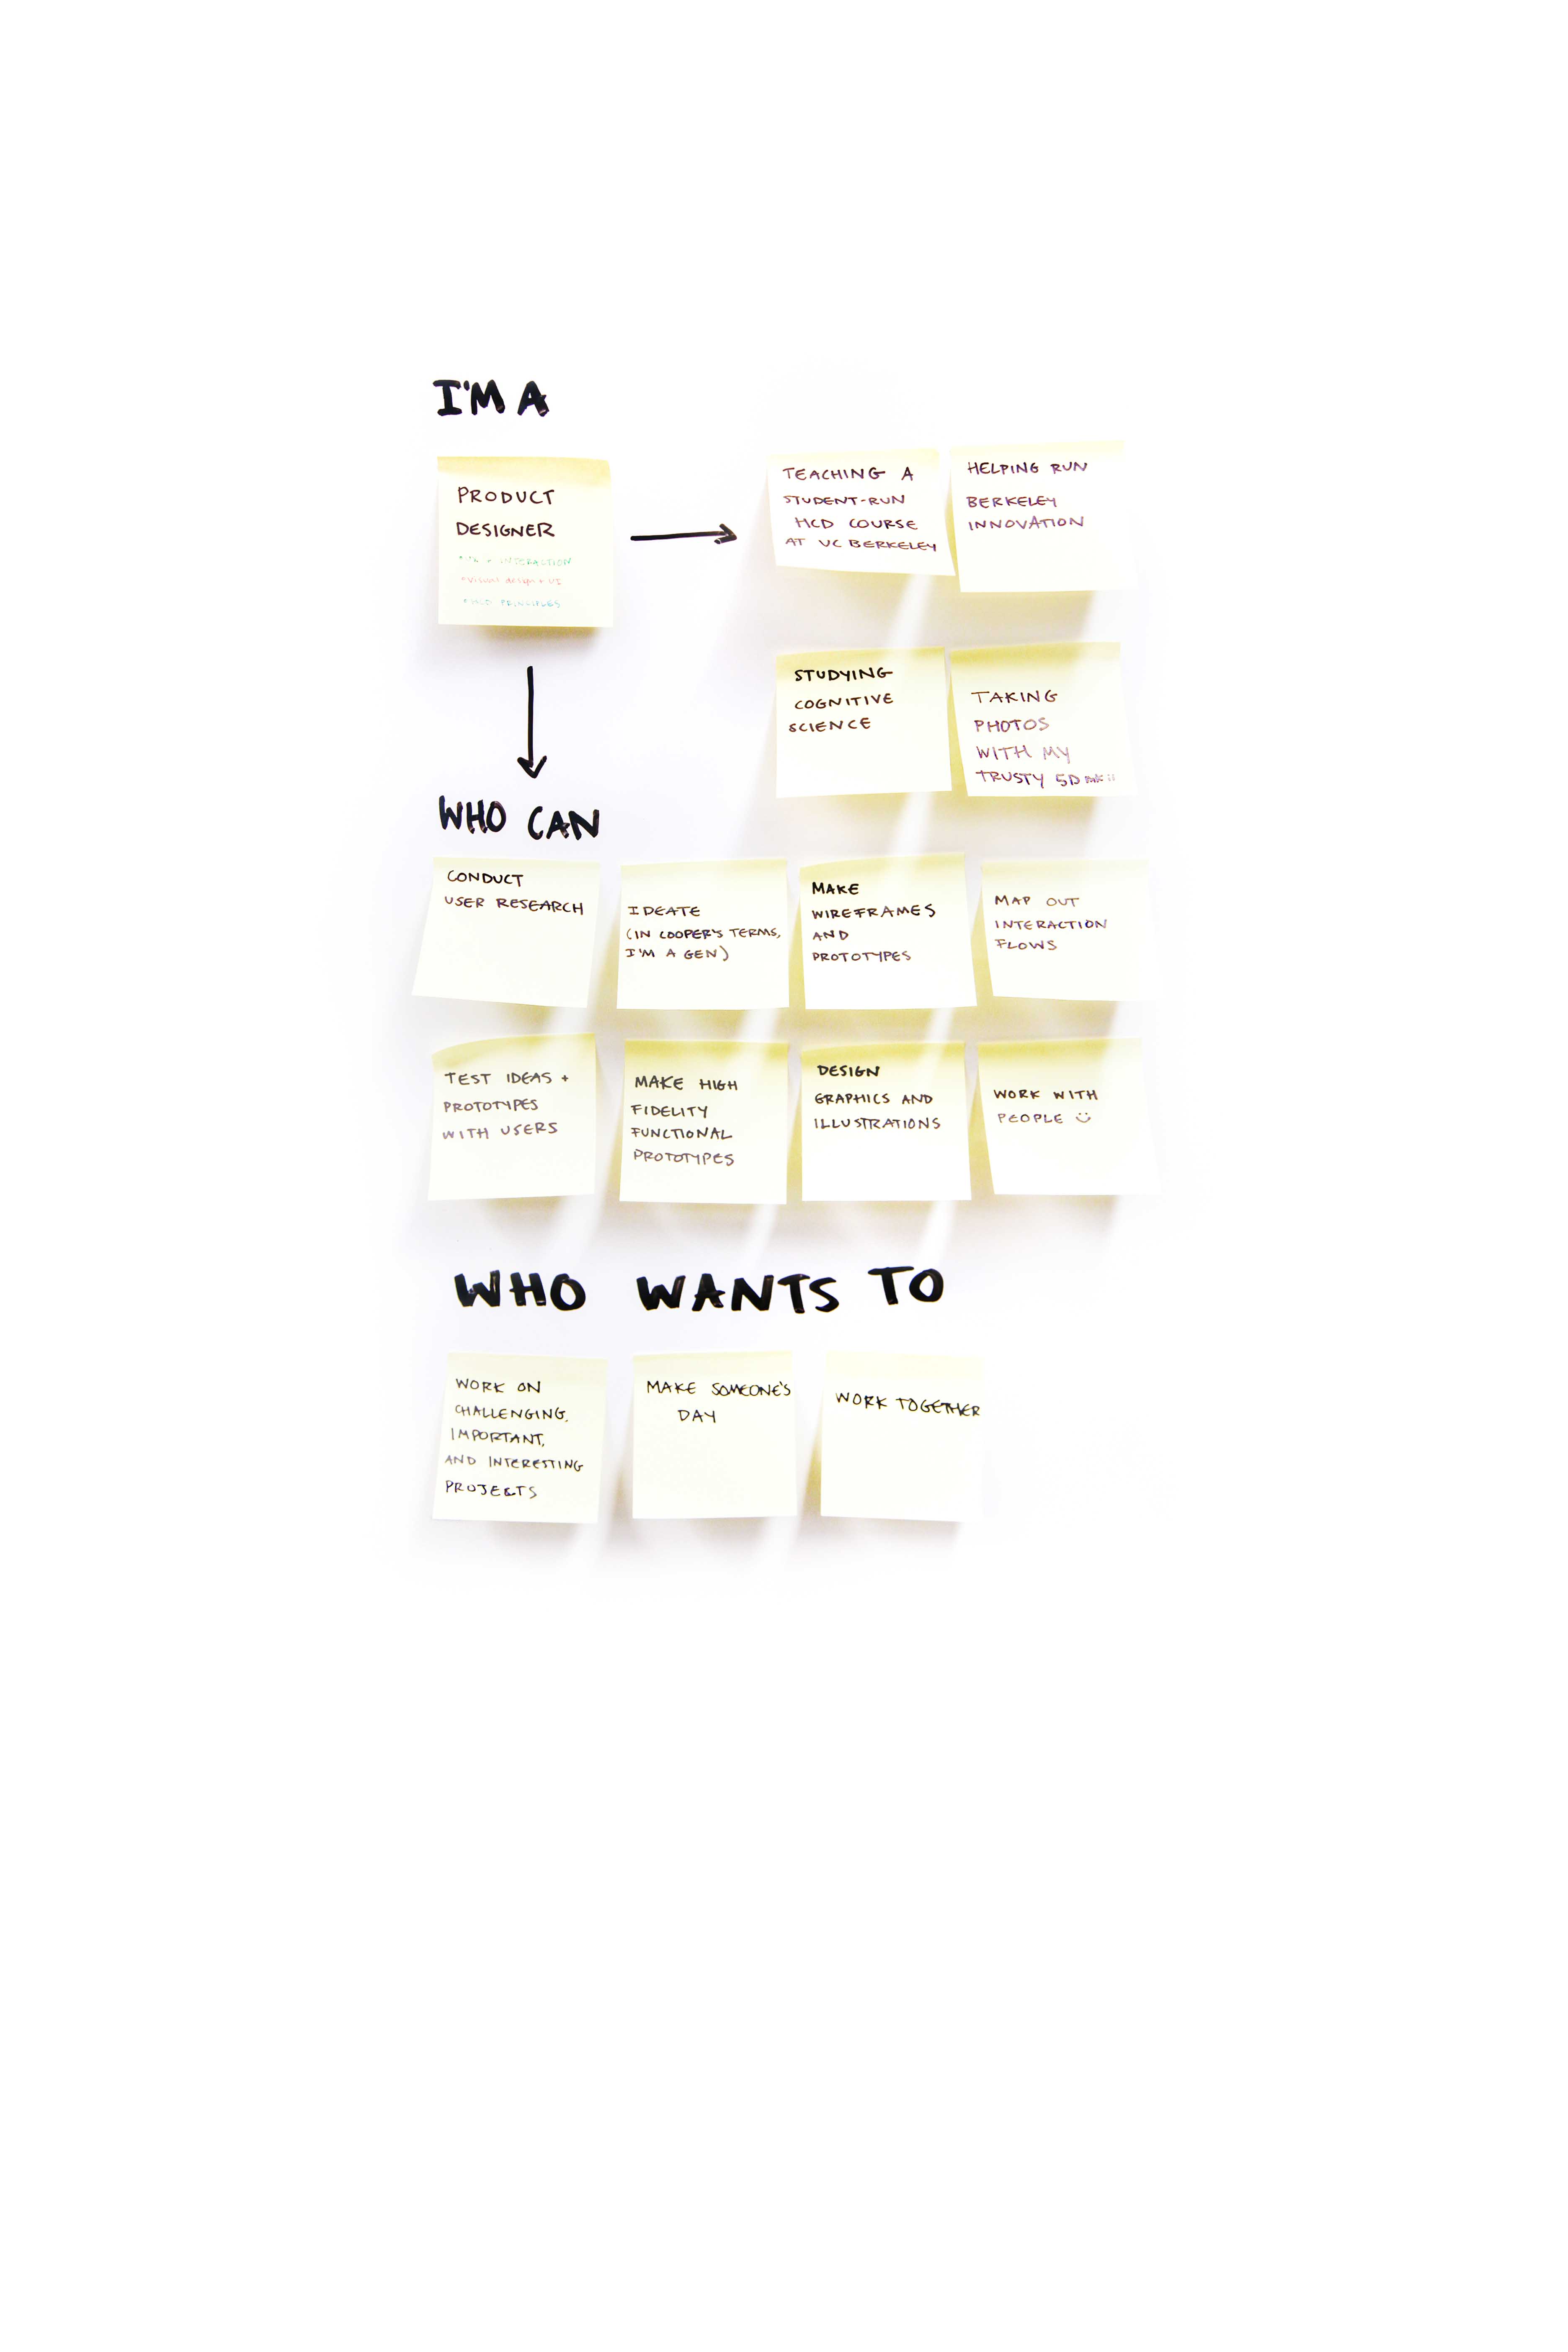 I'M A
PRODUCT
DESIGNER
• UX + INTERACTION
• visual design + UI
• HCD PRINCIPLES
TEACHING A
STUDENT-RUN
HCD COURSE
AT UC BERKELEY
HELPING RUN
BERKELEY
INNOVATION
STUDYING
COGNITIVE
SCIENCE
TAKING
PHOTOS
WITH MY
TRUSTY 5D MKii
WHO CAN
CONDUCT
USER RESEARCH
IDEATE
(IN COOPER'S TERMS,
I'M A GEN)
MAKE
WIREFRAMES
AND
PROTOTYPES
MAP OUT
INTERACTION
FLOWS
TEST IDEAS +
PROTOTYPES
WITH USERS
MAKE HIGH
FIDELITY
FUNCTIONAL
PROTOTYPES
DESIGN
GRAPHICS AND
ILLUSTRATIONS
WORK WITH
PEOPLE ☺
WHO WANTS TO
WORK ON
CHALLENGING,
IMPORTANT,
AND INTERESTING
PROJECTS
MAKE SOMEONE'S
DAY
WORK TOGETHER